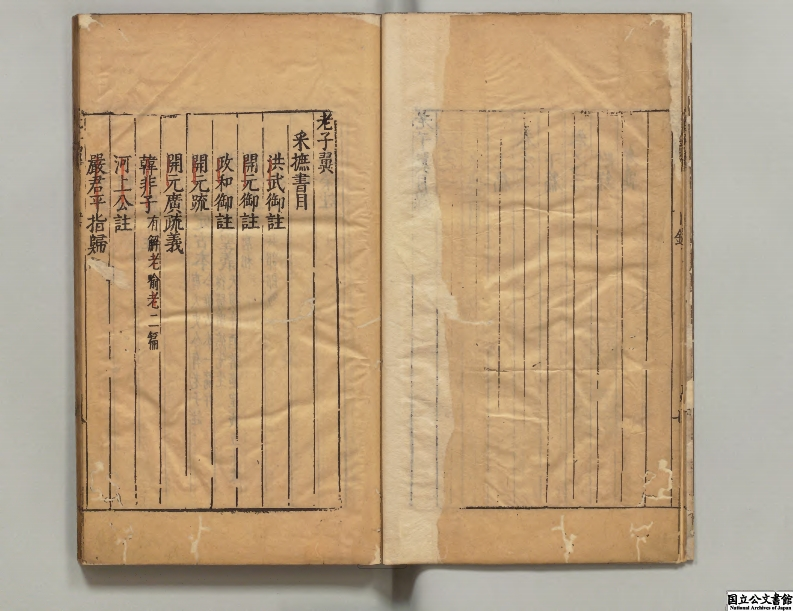 老子翼
采摭書目
洪武御註
開元御註
政和御註
開元疏
開元廣疏義
韓非子 有解老喻老二篇
河上公註
嚴君平指歸
国立公文書館
National Archives of Japan